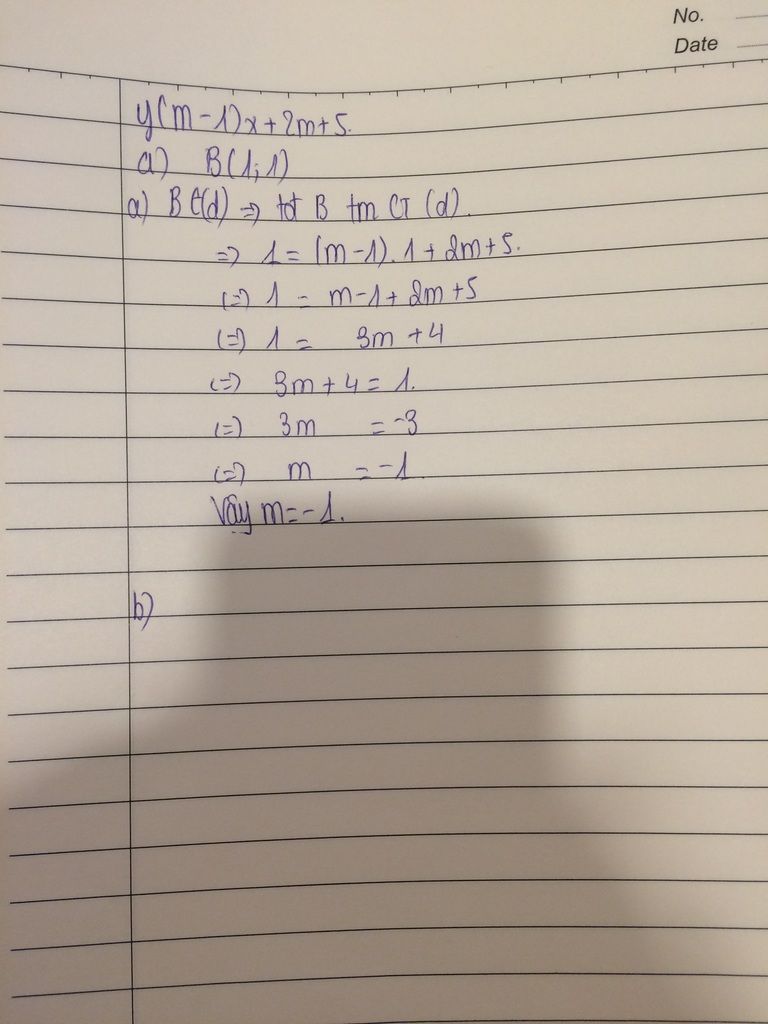 No.
Date
y(m-1)x+2m+5.
a) B(1;1)
a) B∈(d) => tđ B tm CT (d).
=> 1 = (m-1).1 + 2m+5.
(=) 1 = m-1+2m+5
(=) 1 = 3m +4
(=) 3m + 4 = 1.
(=) 3m = -3
(=) m = -1
Vậy m=-1.
b)